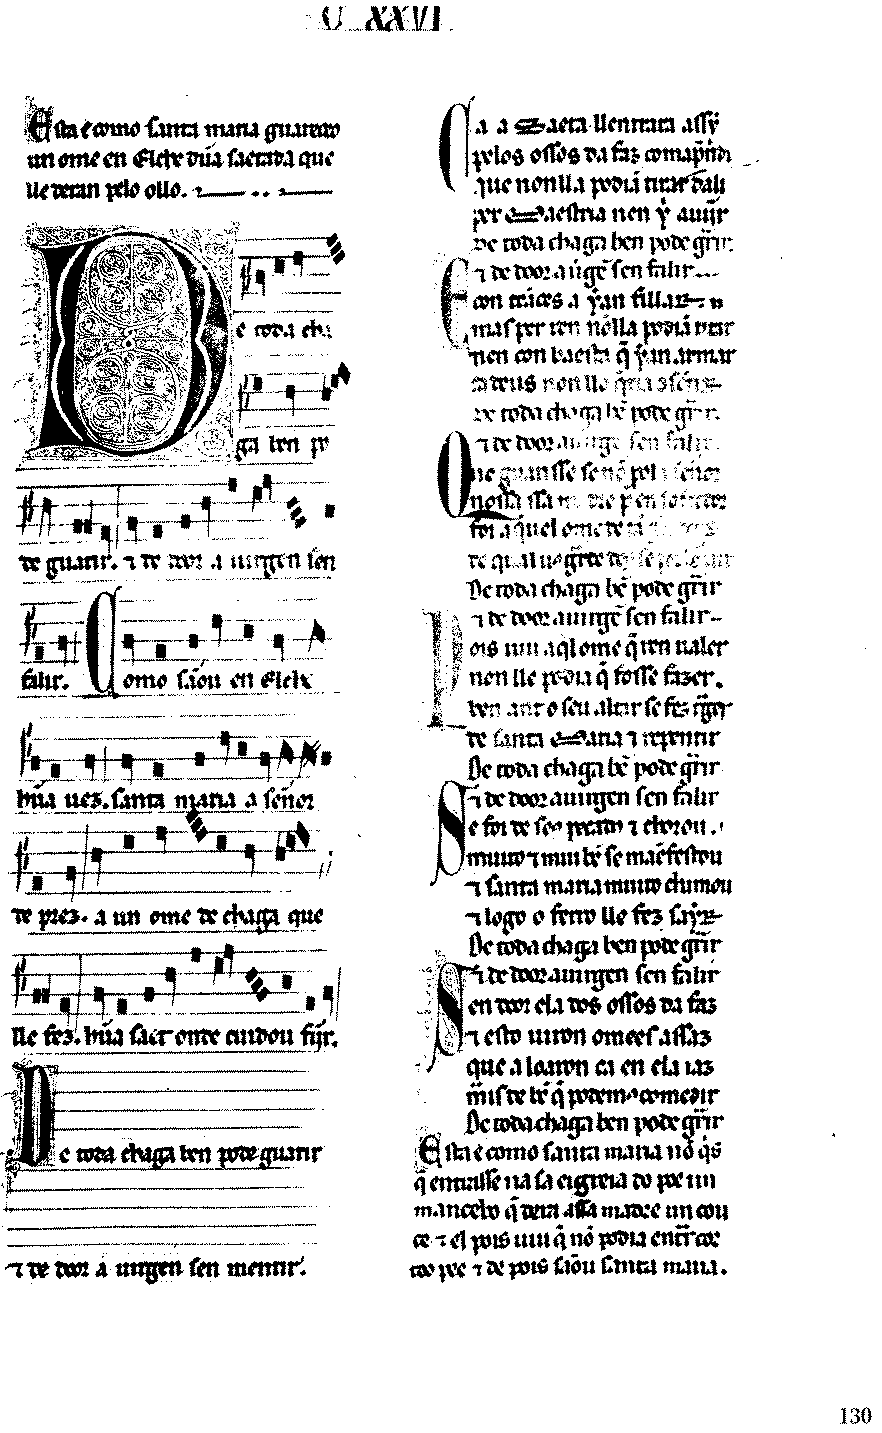 C XXVI
Esta e como santa maria guareceo
un ome en Elche dũa saetada que
lle deran pelo ollo.
De toda cha
ga ben po
de guarir. ⁊ de door a uirgen sen
falir. Como sãou en Elch
hũa uez. santa maria a señor
de prez. a un ome de chaga que
lle fez. hũa saet onde cuidou fĩir.
De toda chaga ben pode guarir
⁊ de door a uirgen sen mentir.
Ca a Saeta ll entrara assy
pelos ossos da faz
que non lla podiã tirar dali
per Maestria nen y auijr
De toda chaga ben pode g̃rir.
⁊ de door a uirgẽ sen falir
E con teaces a fillar
mas per ren nõlla podiã tirar
nen con baesta q̃ y an armar
ca deus non llo
De toda chaga bẽ pode g̃rir.
⁊ de door a uirgẽ sen falir.
Que guarisse se nõ pola señor
nossa ssa madre
foi a quel ome de
de qual
De toda chaga bẽ pode g̃rir
⁊ de door a uirgẽ sen falir
Pois uiu aql ome q̃ ren ualer
non lle podia q̃ fosse fazer.
ben ant o seu altar se fez
de santa Maria ⁊ repentir
De toda chaga bẽ pode g̃rir
⁊ de door a uirgen sen falir
Se foi de seo pecado ⁊ chorou.
muito ⁊ mui bẽ se mãefestou
⁊ santa maria muito chamou
⁊ logo o ferro lle fez sayr
De toda chaga ben pode g̃rir
⁊ de door a uirgen sen falir
Sen door ela dos ossos da faz
⁊ esto uiron omees assaz
que a loaron ca en ela iaz
m̃is de bẽ q̃ podemº comedir
De toda chaga ben pode g̃rir
Esta e como santa maria nõ q̃s
q̃ entrasse na sa eigreia do poe un
mancebo q̃ dera assa madre un cou
ce ⁊ el pois uiu q̃ nõ podia entr̃ cor
tou o pee ⁊ de pois sãou santa maria.
130